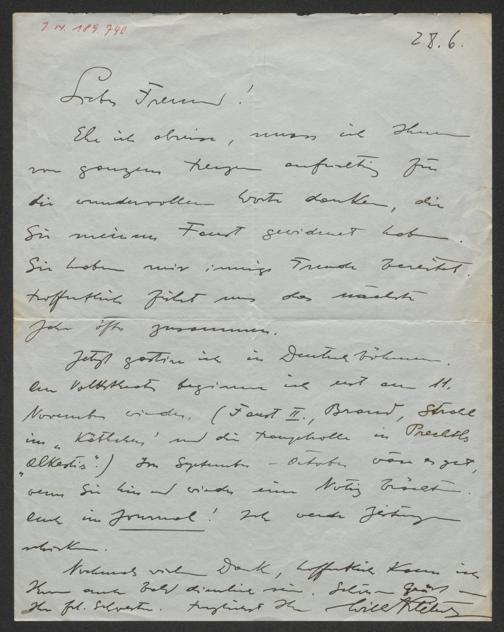 J.N. 189.740
28.6.
Lieber Freund!
Ehe ich abreise, muss ich Ihnen
von ganzem Herzen aufrichtig für
die wundervollen Worte danken, die
Sie meinem Faust gewidmet haben.
Sie haben mir innige Freude bereitet.
Hoffentlich führt uns das nächste
Jahr öfter zusammen.
Jetzt gastire ich in Deutschböhmen.
Am Volkstheater beginne ich erst am 11.
November wieder. (Faust II., Brand, Strahl
im „Käthchen" und die Hauptrolle in Prechtls
„Alkestis".) Im September - October wäre es gut,
wenn Sie hin und wieder eine Notiz brächten.
Auch im Journal! Ich werde Zeitungen
schicken.
Nochmals vielen Dank, hoffentlich kann ich
Ihnen auch bald dienlich sein. Schöne Grüße
Ihr Frl. Schwester. Herzlichst Ihr Willi